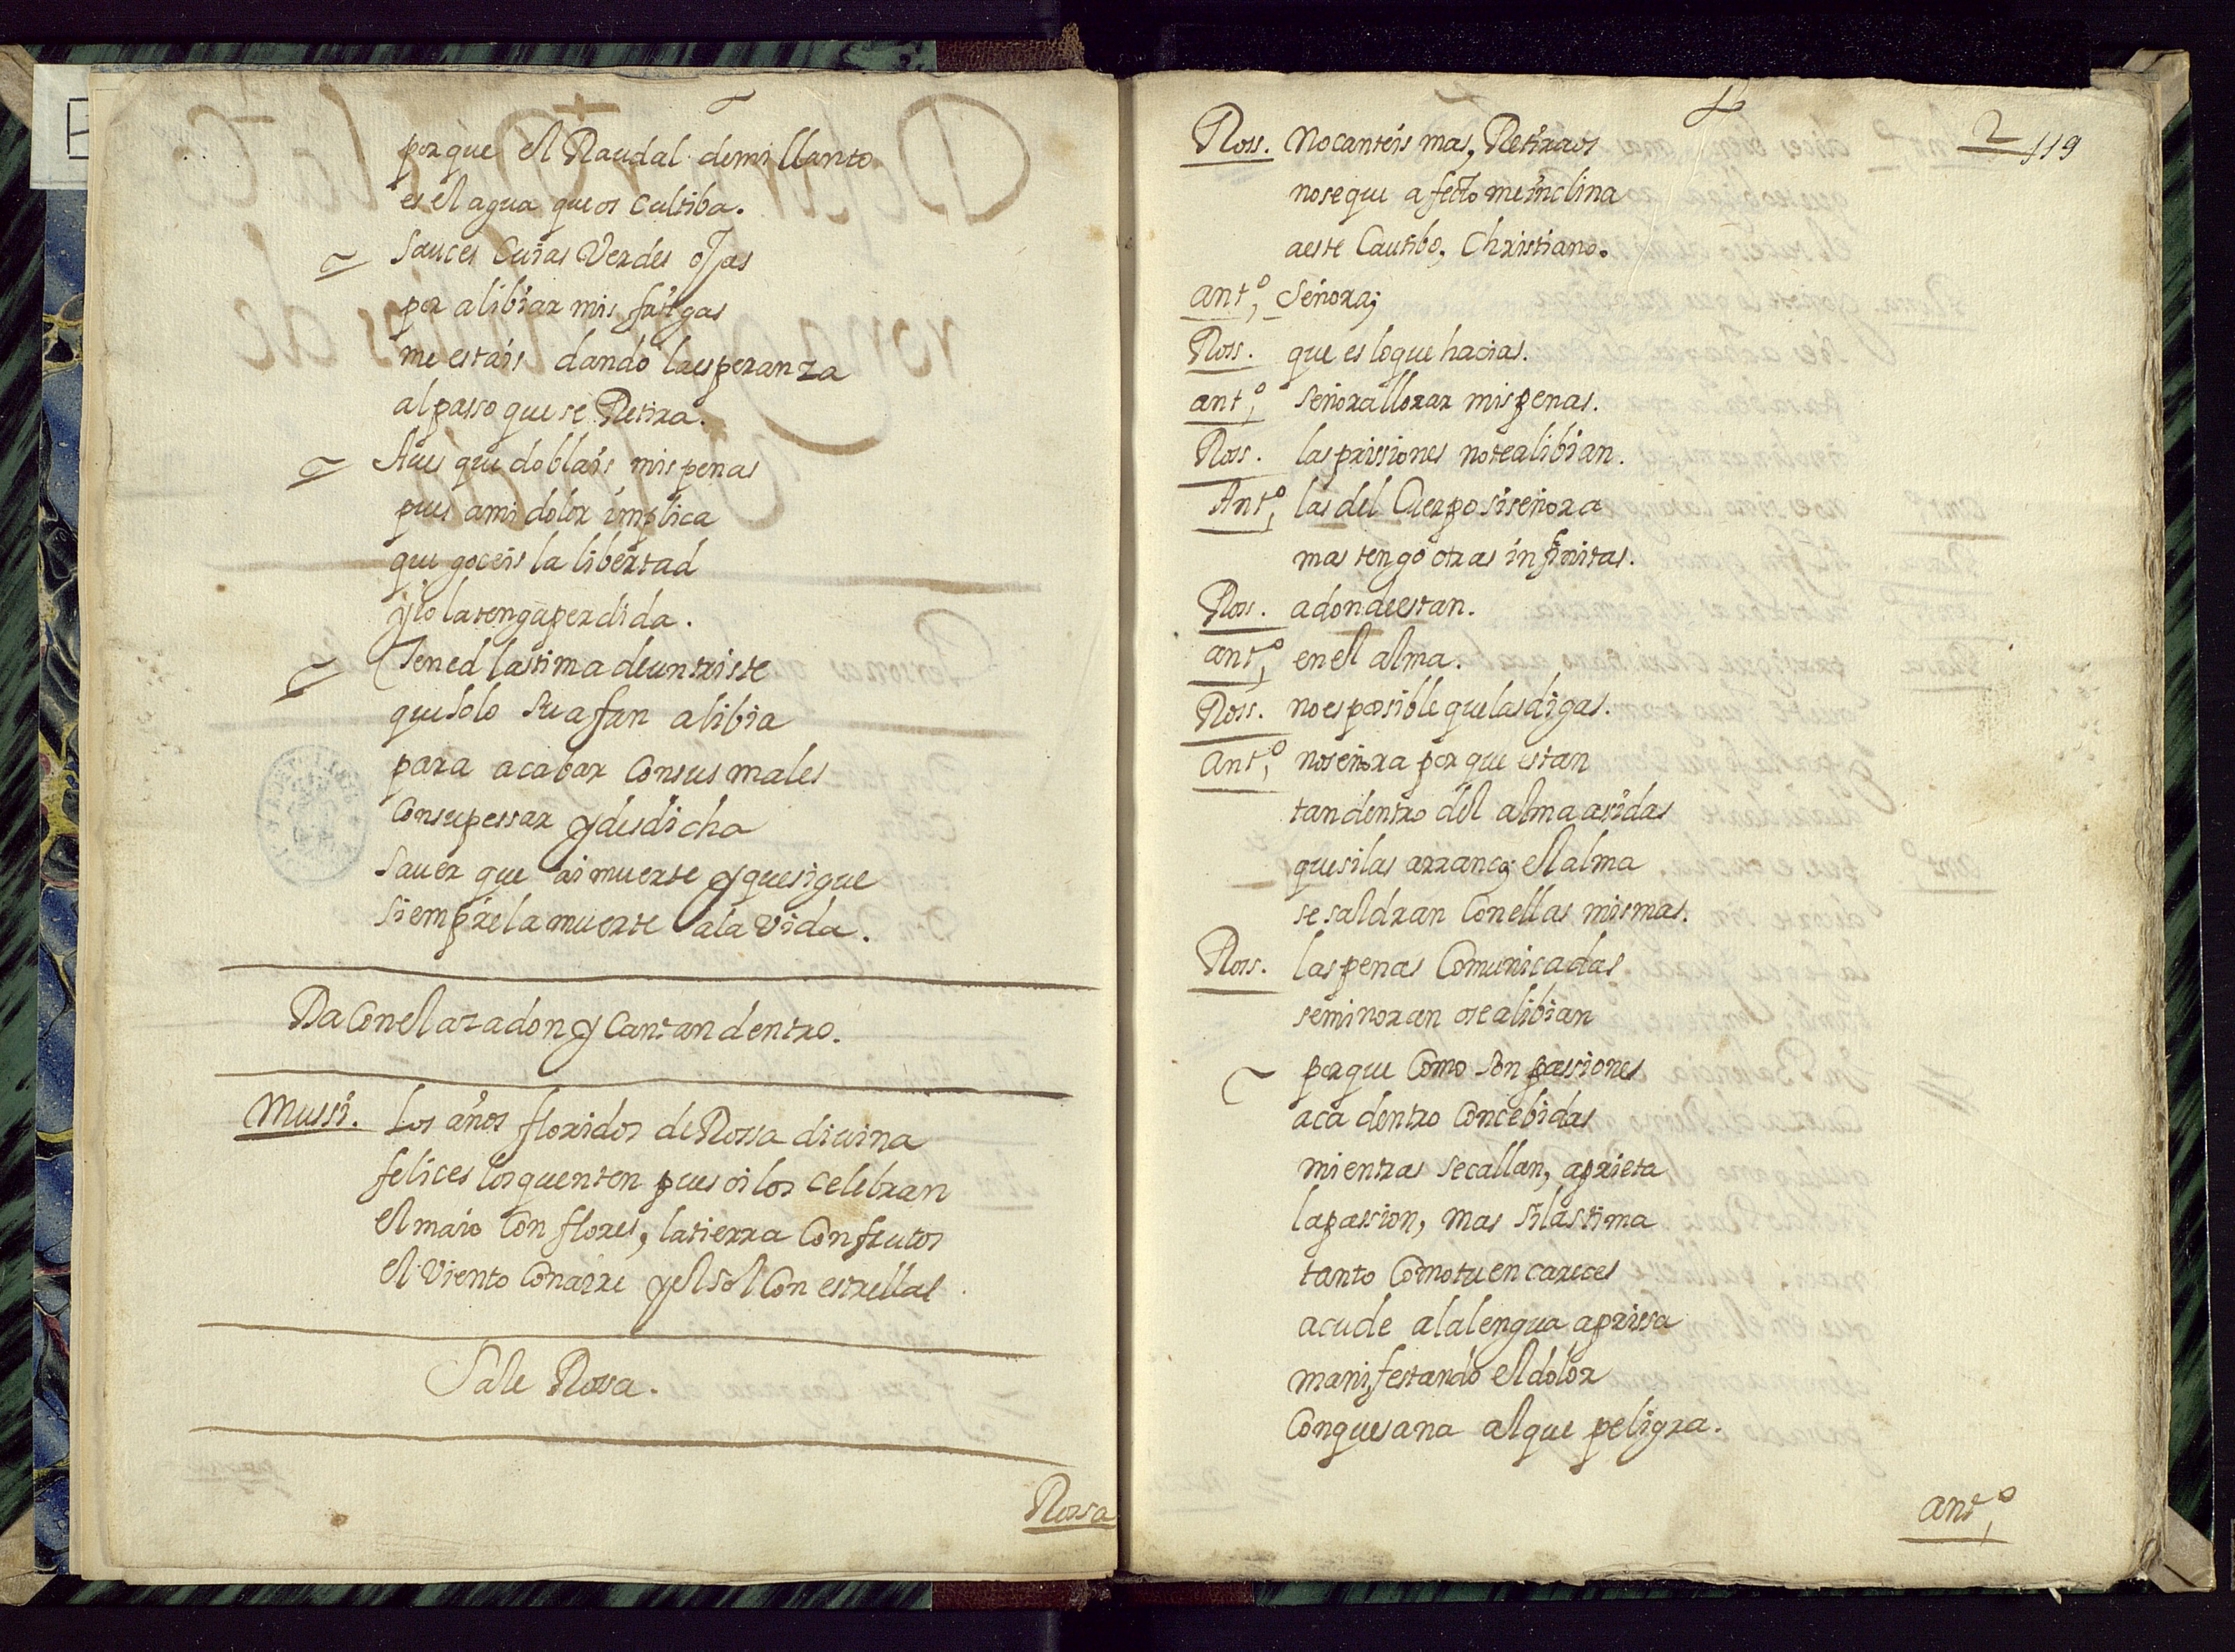 porque el Raudal demi llanto
es el agua que os cultiba.
Sauces Cuias Verdes ojas
por alibiar mis fatigas
me estais dando laesperanza
al passo que se Retira.
Aues que doblais mis penas
pues ami dolor implica
que goceis la libertad
yio latenga perdida.
Tened lastima deuntriste
que solo su afan alibia
para acabar Consus males
Consupessar ydesdicha
sauer que ai muerte yquesigue
siempre la muerte ala vida.
Da Conel azadon y Cantan dentro.
Mussi. Los años floridos de Rossa diuina
felices losquenten pues oi los celebran
el maio Con flores, latierra Confrutos
el Viento Conaire yel sol Con estrellas
Sale Rossa.
Rossa
2
119
Ros. No canteis mas, Retiraos
nose que afecto meinclina
aeste Cautibo, Christiano.
antº, Señora;
Ros. que es loque hacias.
antº, Señora llorar mis penas.
Ros. las prissiones no tealibian.
Antº, las del Cuerpo siseñora
mas tengo otras infinitas.
Ros. adonde estan.
antº, en el alma.
Ros. noes posible que las digas.
antº, noseñora por que estan
tan dentro del alma asidas
quesilas arranco, el alma
se saldran Conellas mismas.
Ros. las penas Comunicadas
seminoran ose alibian
porque Como son passiones
aca dentro Concebidas
mientras secallan, aprieta
lapassion, mas si lastima
tanto Como tu encareces
acude alalengua aprissa
manifestando el dolor
Conquesana alque peligra.
antº,